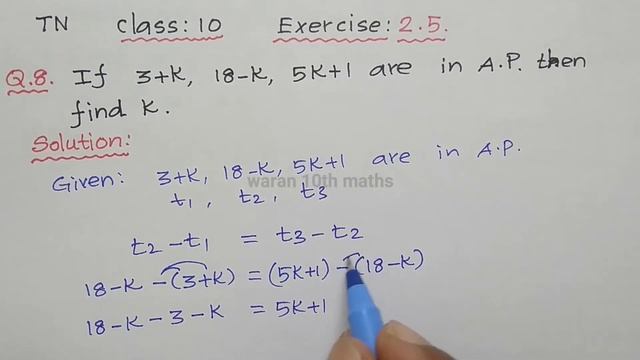 TN Class: 10 Exercise: 2.5.
Q.8. If 3+K, 18-K, 5K+1 are in A.P. then
find K.
Solution:
Given: 3+K, 18-K, 5K+1 are in A.P.
waran 10th maths
t1, t2, t3
t2 - t1 = t3 - t2
18-K - (3+K) = (5K+1) - (18-K)
18-K - 3 - K = 5K+1